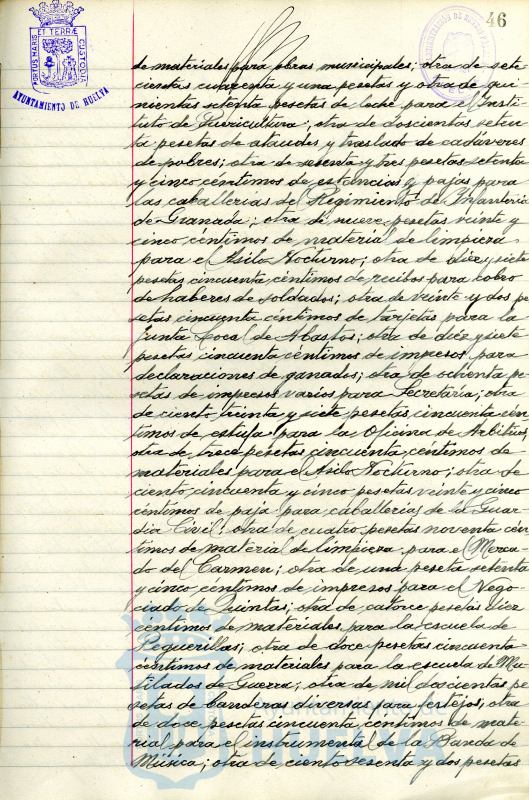 46
PORTUS MARIS ET TERRÆ CUSTODIÆ
AYUNTAMIENTO DE HUELVA
de materiales para obras municipales; otra de sete-
cientas cuarenta y una pesetas y otra de qui-
nientas setenta pesetas de leche para el Insti-
tuto de Puericultura; otra de doscientas seten-
ta pesetas de ataudes y traslado de cadáveres
de pobres; otra de sesenta y tres pesetas setenta
y cinco céntimos de estancias y pajas para
las caballerias del Regimiento de Infanteria
de Granada; otra de nueve pesetas veinte y
cinco céntimos de material de limpieza
para el Asilo Nocturno; otra de diez y siete
pesetas cincuenta céntimos de recibos para cobro
de haberes de soldados; otra de veinte y dos pe-
setas cincuenta céntimos de tarjetas para la
Junta Local de Abastos; otra de diez y siete
pesetas cincuenta céntimos de impresos para
declaraciones de ganados; otra de ochenta pe-
setas de impresos varios para Secretaría; otra
de ciento treinta y siete pesetas cincuenta cén-
timos de estufa para la Oficina de Arbitrios;
otra de trece pesetas cincuenta céntimos de
materiales para el Asilo Nocturno; otra de
ciento cincuenta y cinco pesetas veinte y cinco
céntimos de paja para caballerias de la Guar-
dia Civil; otra de cuatro pesetas noventa cén-
timos de material de limpieza para el Merca-
do del Carmen; otra de una peseta setenta
y cinco céntimos de impresos para el Nego-
ciado de Quintas; otra de catorce pesetas diez
céntimos de materiales para la escuela de
Peguerillas; otra de doce pesetas cincuenta
céntimos de materiales para la escuela de Mu-
tilados de Guerra; otra de mil doscientas pe-
setas de banderas diversas para festejos; otra
de doce pesetas cincuenta céntimos de mate-
rial para el instrumental de la Banda de
Música; otra de ciento sesenta y dos pesetas
Ayuntamiento de
HUELVA